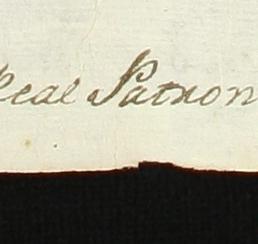 Real Patron